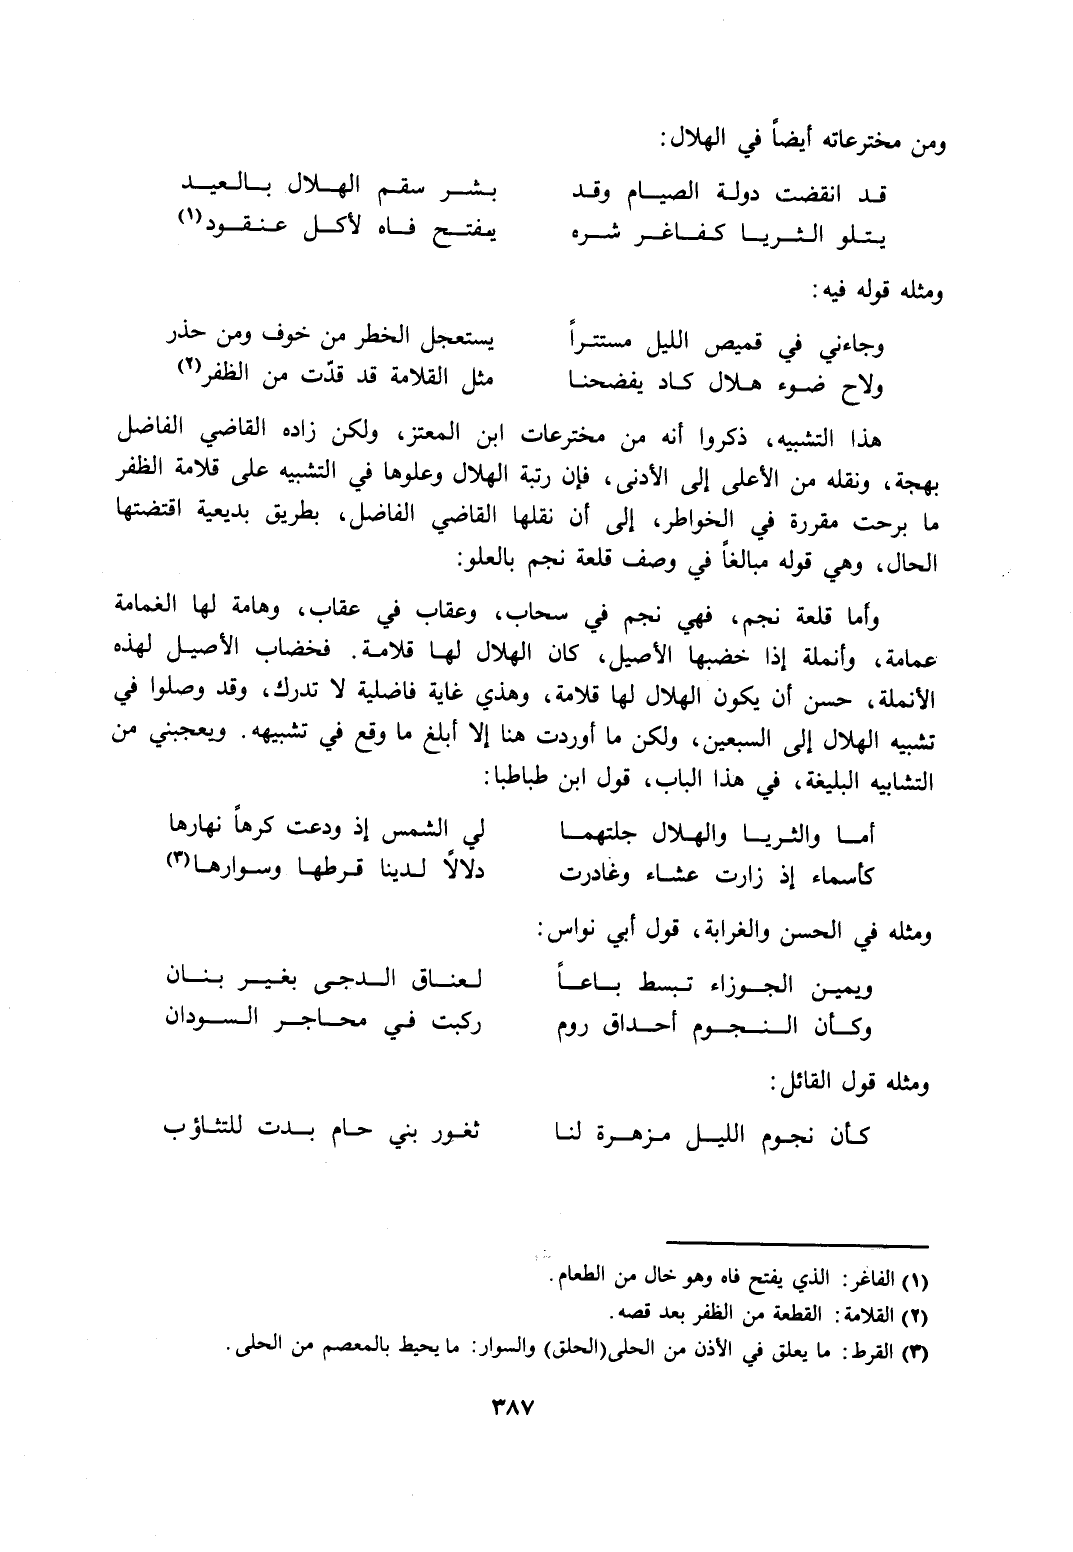 ومن مخترعاته أيضاً في الهلال:
قد انقضت دولة الصيام وقد بشر سقم الهلال بالعيد
يتلو الثريا كفاغر شره يفتح فاه لأكل عنقود(١)
ومثله قوله فيه:
وجاءني في قميص الليل مستتراً يستعجل الخطر من خوف ومن حذر
ولاح ضوء هلال كاد يفضحنا مثل القلامة قد قدّت من الظفر(٢)
هذا التشبيه، ذكروا أنه من مخترعات ابن المعتز، ولكن زاده القاضي الفاضل
بهجة، ونقله من الأعلى إلى الأدنى، فإن رتبة الهلال وعلوها في التشبيه على قلامة الظفر
ما برحت مقررة في الخواطر، إلى أن نقلها القاضي الفاضل، بطريق بديعية اقتضتها
الحال، وهي قوله مبالغاً في وصف قلعة نجم بالعلو:
وأما قلعة نجم، فهي نجم في سحاب، وعقاب في عقاب، وهامة لها الغمامة
عمامة، وأنملة إذا خضبها الأصيل، كان الهلال لها قلامة. فخضاب الأصيل لهذه
الأنملة، حسن أن يكون الهلال لها قلامة، وهذي غاية فاضلية لا تدرك، وقد وصلوا في
تشبيه الهلال إلى السبعين، ولكن ما أوردت هنا إلا أبلغ ما وقع في تشبيهه. ويعجبني من
التشابيه البليغة، في هذا الباب، قول ابن طباطبا:
أما والثريا والهلال جلتهما لي الشمس إذ ودعت كرهاً نهارها
كأسماء إذ زارت عشاء وغادرت دلالاً لدينا قرطها وسوارها(٣)
ومثله في الحسن والغرابة، قول أبي نواس:
ويمين الجوزاء تبسط باعاً لعناق الدجى بغير بنان
وكأن النجوم أحداق روم ركبت في محاجر السودان
ومثله قول القائل:
كأن نجوم الليل مزهرة لنا ثغور بني حام بدت للتثاؤب
(١) الفاغر: الذي يفتح فاه وهو خال من الطعام.
(٢) القلامة: القطعة من الظفر بعد قصه.
(٣) القرط: ما يعلق في الأذن من الحلى(الحلق) والسوار: ما يحيط بالمعصم من الحلى.
٣٨٧